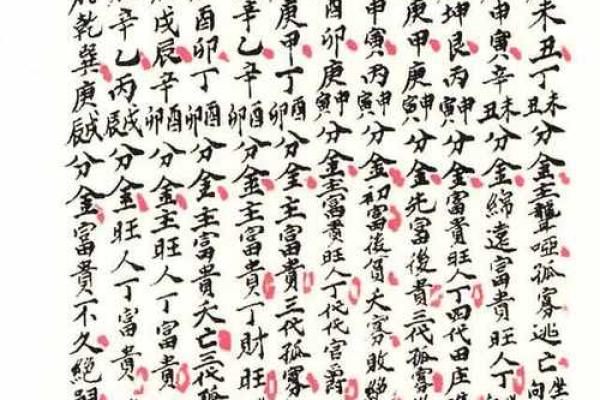 未丑丁未丑分金主聾啞孤寡逃亡坐向
申寅辛未丑分金綿遠富貴旺人丁
坤艮丙申寅分金富貴旺人丁四代田庄
庚甲庚申寅分金先富後貴三代孤寡
申寅丙申寅分金初富後貧夭寡敗絕
酉卯庚申寅分金主富貴旺人丁代代官爵
庚甲丁酉卯分金主富貴三代孤寡
辛乙辛酉卯分金主富貴丁財旺
酉卯丁酉卯分金主富貴夭亡三代孤
戌辰辛酉卯分金主旺人丁富貴
辛乙丙戌辰分金旺人丁富貴
乾巽庚戌辰分金富貴不久絕